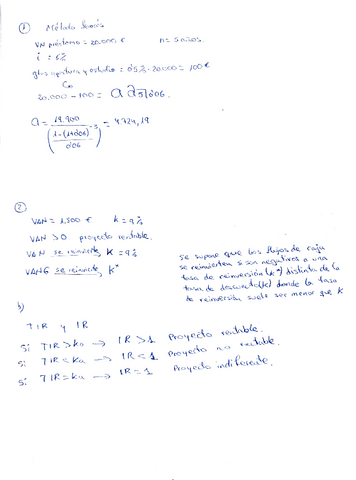 ① Método francés
VN préstamo = 20.000 € n = 5 años.
i = 6%
gtos apertura y estudio = 0'5% · 20.000 = 100 €
C₀
20.000 - 100 = a a 5┐0'06.
a = 19.900 / ((1-(1+0'06)^-5) / 0'06) = 4.724,19
② VAN = 1.500 € k = 9%
VAN > 0 proyecto rentable.
VAN se reinvierte K = 9%
VANG se reinvierte K*
Se supone que los flujos de caja
se reinvierten si son negativos a una
tasa de reinversión (k*) distinta de la
tasa de descuento (k) donde la tasa
de reinversión suele ser menor que K
b)
TIR y IR
Si TIR > ko → IR > 1 Proyecto rentable.
Si TIR < ko → IR < 1 Proyecto no rentable.
Si TIR = ko → IR = 1 Proyecto indiferente.